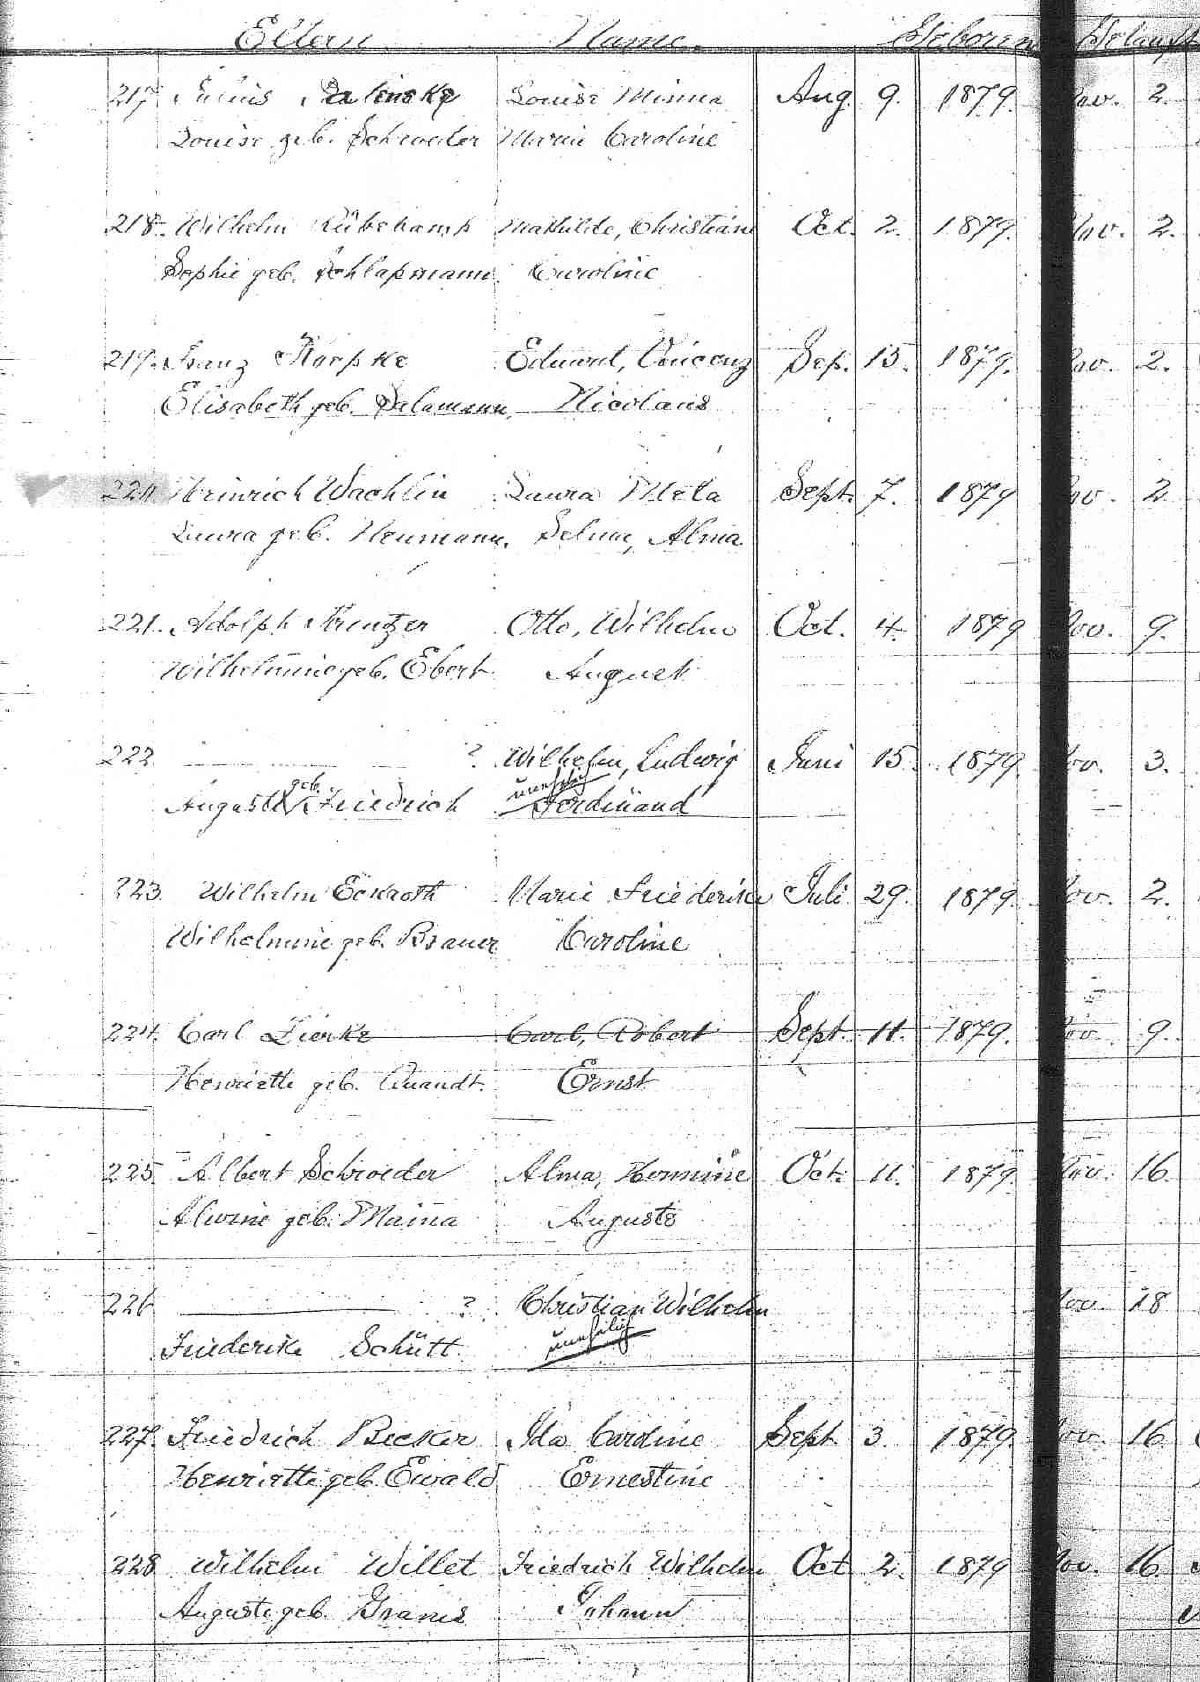 Eltern Name. Geboren Getauft
217. Julius Louise Minna Aug. 9. 1879. Nov. 2.
Louise geb. Schroeder Marie Caroline
218. Wilhelm Rübekamp Mathilde, Christiane Oct. 2. 1879. Nov. 2.
Sophie geb. Schlapmann. Caroline
219. Franz Eduard, Vincenz Sep. 15. 1879. Nov. 2.
Elisabeth geb. Salamann, Nicolaus
220. Heinrich Wachlin Laura Meta Sept. 7. 1879 Nov. 2
Laura geb. Neumann. Selma, Alma
221. Adolph Otto, Wilhelm Oct. 4. 1879 Nov. 9.
Wilhelmine geb. Ebert August
222 ? Wilhelm, Ludwig Juni 15. 1879. Nov. 3.
geb. unehelig
Auguste Friedrich Ferdinand
223. Wilhelm Eckroth Marie Friederike Juli 29. 1879 Nov. 2.
Wilhelmine geb. Brauer Caroline
224. Carl Zierke Carl, Robert Sept. 11. 1879. Nov. 9.
Henriette geb. Quandt. Ernst
225. Albert Schroeder Alma, Hermine Oct. 11. 1879. Nov. 16.
Alwine geb. Maina Auguste
226 ? Christian Wilhelm Nov. 18
Friederike Schütt. unehelig
227. Friedrich Becker Ida Caroline Sept. 3. 1879. Nov. 16
Henriette geb. Ewald Ernestine
228 Wilhelm Willet Friedrich Wilhelm Oct. 2. 1879 Nov. 16
Auguste geb. Johann